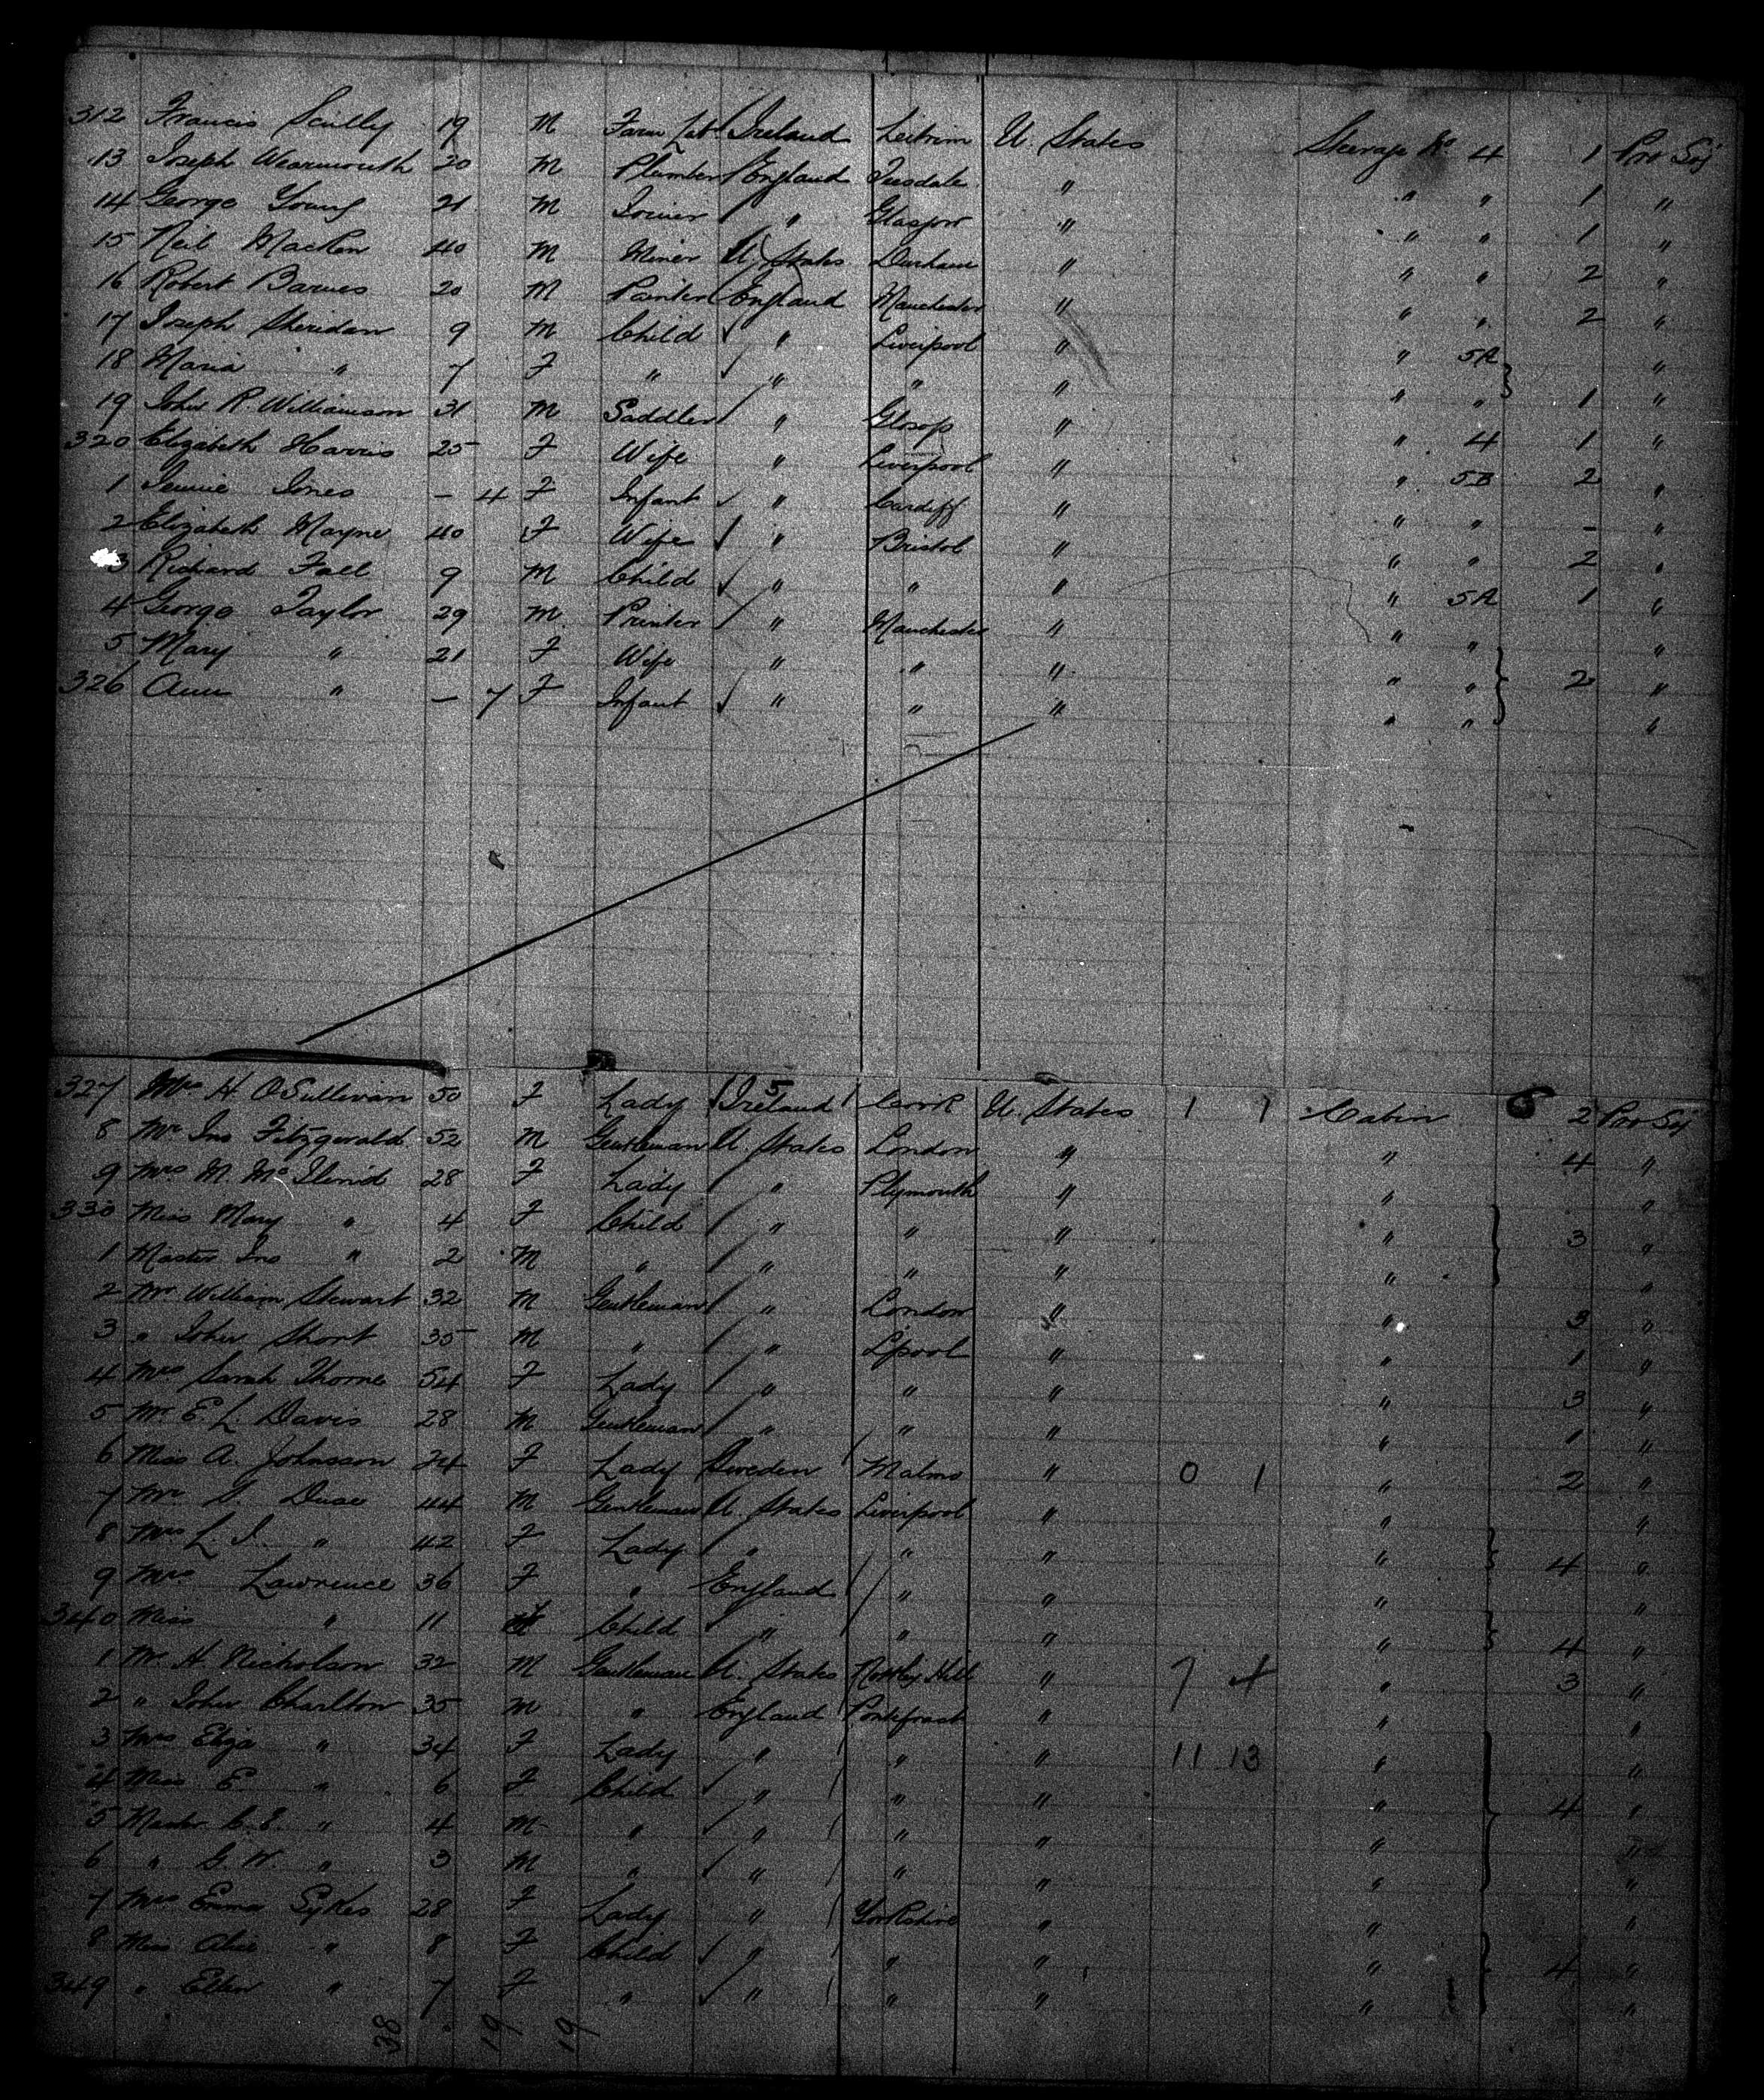 312 Francis Scully 19 M Farm Lab. Ireland Leitrim U. States Steerage No 4 1 Pro Soj
13 Joseph Wearmouth 20 M Plumber England Teesdale " " " 1 "
14 George Young 21 M Joiner " Glasgow " " " 1 "
15 Neil 40 M Miner U. States Durham " " " 2 "
16 Robert Barnes 20 M Painter England Manchester " " " 2 "
17 Joseph Sheridan 9 M Child " Liverpool " " 5A "
18 Maria " 7 F " " " " " " 1 "
19 John R. Williamson 31 M Saddler " Glosop " " 4 1 "
320 Elizabeth Harris 25 F Wife " Liverpool " " 5B 2 "
1 Jennie Jones - 4 F Infant " Cardiff " " " - "
2 Elizabeth Mayne 40 F Wife " Bristol " " " 2 "
3 Richard Fall 9 M Child " " " " 5A 1 "
4 George Taylor 29 M Printer " Manchester " " " "
5 Mary " 21 F Wife " " " " " 2 "
326 Ann " - 7 F Infant " " " " " "
327 Mrs H. OSullivan 50 F Lady Ireland 5 Cork U. States 1 1 Cabin 2 Pro Soj
8 Mr Jno Fitzgerald 52 M Gentleman U. States London " " 4 "
9 Mrs M. 28 F Lady " Plymouth " " "
330 Miss Mary " 4 F Child " " " " 3 "
1 Master Jno " 2 M " " " " " "
2 Mr William Stewart 32 M Gentleman " London " " 3 "
3 " John Short 35 M " " L'pool " " 1 "
4 Mrs Sarah Thorne 54 F Lady " " " " 3 "
5 Mr E. L. Davis 28 M Gentleman " " " " 1 "
6 Miss A. Johnsson 24 F Lady Sweden Malmo " 0 1 " 2 "
7 Mr S. 44 M Gentleman U. States Liverpool " " "
8 Mrs L. J. " 42 F Lady " " " " 4 "
9 Mrs Lawrence 36 F " England " " " "
340 Miss " 11 F Child " " " " 4 "
1 Mr H Nicholson 32 M Gentleman U. States " 7 4 " 3 "
2 " John Charlton 35 M " England Pontefract " " "
3 Mrs Eliza " 34 F Lady " " " 11 13 " "
4 Miss E. " 6 F Child " " " " 4 "
5 Master C. E. " 4 M " " " " " "
6 " G. W. " 3 M " " " " " "
7 Mrs Emma Sykes 28 F Lady " Yorkshire " " "
8 Miss Alice " 8 F Child " " " " 4 "
349 " Ellen " 7 F " " " " " "
38 19 19